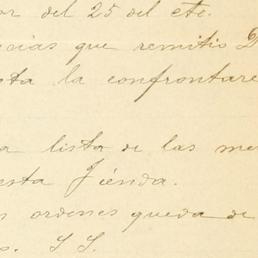 or del 25 del cte.
cias que remitis D
sta la confrontare
a lista de las me
esta Tienda.
s ordenes queda de
s. S. S.